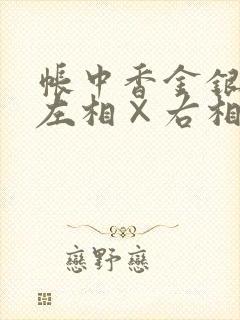 帳中香金銀
左相×右相
戀野戀